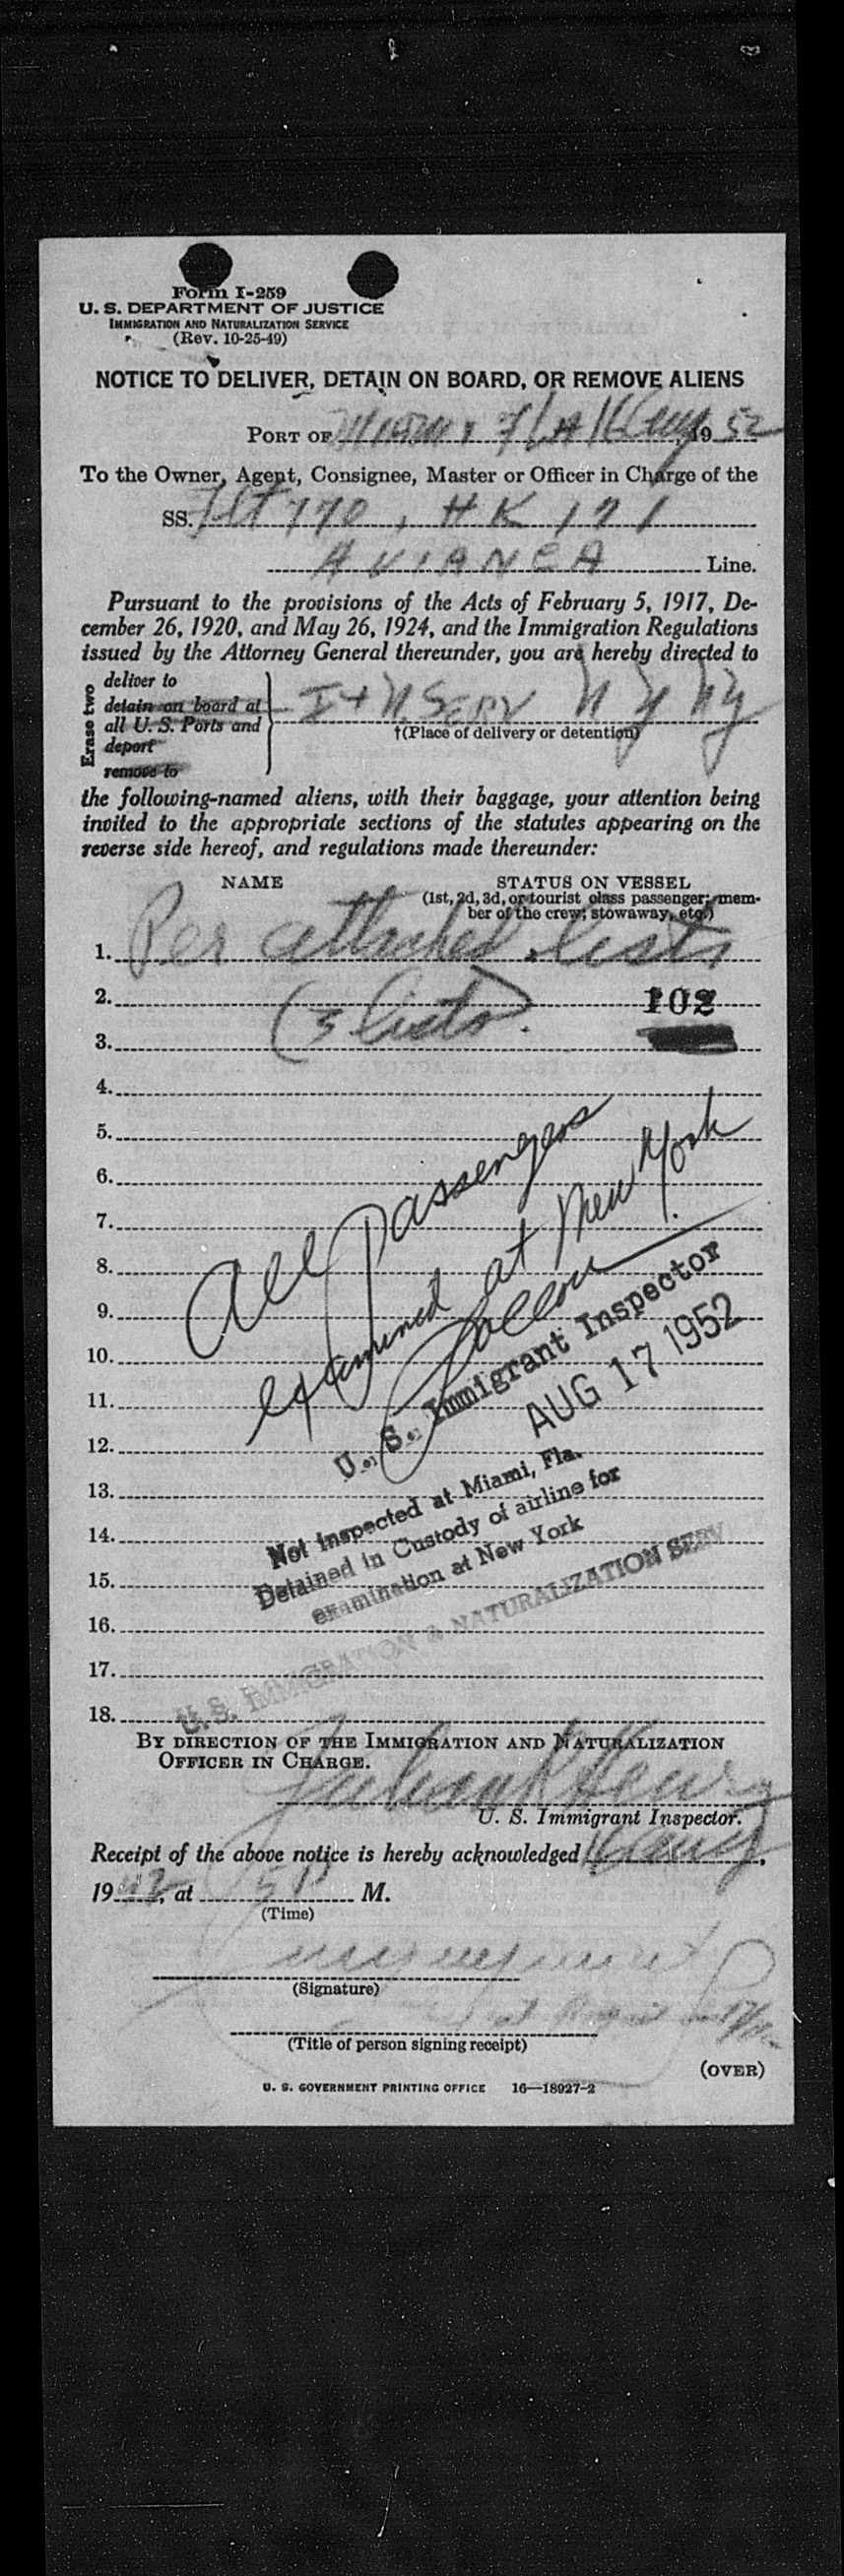 Form I-259
U. S. DEPARTMENT OF JUSTICE
IMMIGRATION AND NATURALIZATION SERVICE
(Rev. 10-25-49)
NOTICE TO DELIVER, DETAIN ON BOARD, OR REMOVE ALIENS
PORT OF Miami, Fla 16 Aug, 19 52
To the Owner, Agent, Consignee, Master or Officer in Charge of the
SS. Flt 770, HK 171
AVIANCA Line.
Pursuant to the provisions of the Acts of February 5, 1917, De-
cember 26, 1920, and May 26, 1924, and the Immigration Regulations
issued by the Attorney General thereunder, you are hereby directed to
Erase two
deliver to
detain on board at
all U. S. Ports and
deport
remove to
I + N. SERV N Y N Y
†(Place of delivery or detention)
the following-named aliens, with their baggage, your attention being
invited to the appropriate sections of the statutes appearing on the
reverse side hereof, and regulations made thereunder:
NAME STATUS ON VESSEL
(1st, 2d, 3d, or tourist class passenger; mem-
ber of the crew; stowaway, etc.)
1. Per attached lists
2. (3 lists). 102
3.
4.
5.
6.
7.
8.
9.
10.
11.
12.
13.
14.
15.
16.
17.
18.
All passengers
examined at New York
U. S. Immigrant Inspector
AUG 17 1952
Not Inspected at Miami, Fla.
Detained in Custody of airline for
examination at New York
U. S. IMMIGRATION & NATURALIZATION SERV
BY DIRECTION OF THE IMMIGRATION AND NATURALIZATION
OFFICER IN CHARGE.
U. S. Immigrant Inspector.
Receipt of the above notice is hereby acknowledged 16 Aug,
19 52, at M.
(Time)
(Signature)
(Title of person signing receipt)
(OVER)
U. S. GOVERNMENT PRINTING OFFICE 16—18927-2